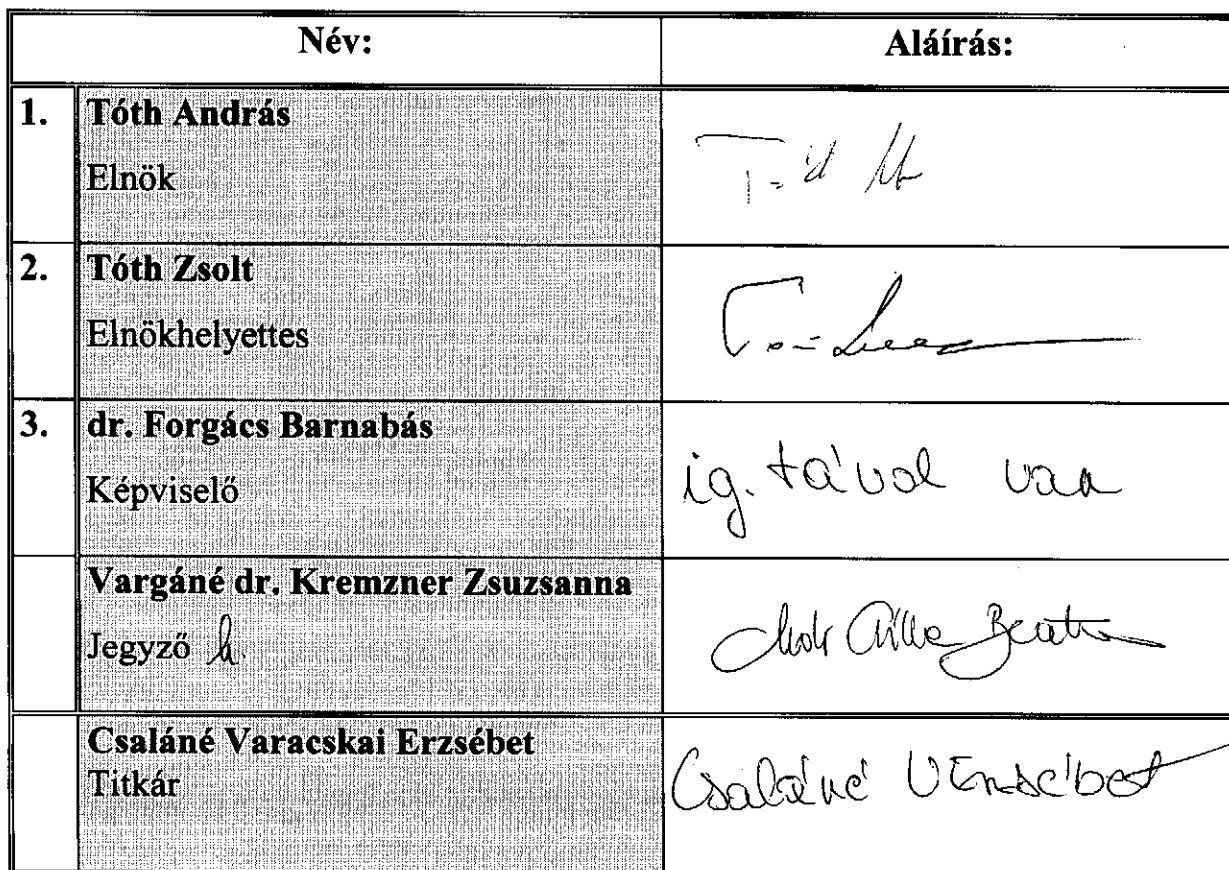 Név: Aláírás:
1. Tóth András
Elnök
2. Tóth Zsolt
Elnökhelyettes
3. dr. Forgács Barnabás
Képviselő
ig. távol van
Vargáné dr. Kremzner Zsuzsanna
Jegyző h.
Csaláné Varacskai Erzsébet
Titkár
Csaláné V Erzsébet